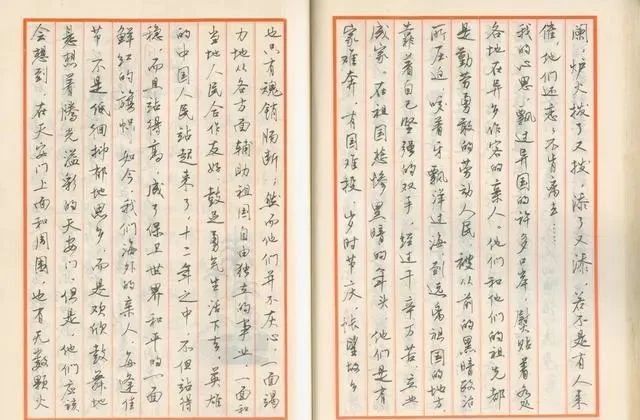 阑，炉火拨了又拨，添了又添，若不是有人来
催，他们还恋恋不肯离去……
我的心思，飘过异国的许多口岸，熨贴着各处
各地在异乡作客的亲人。他们和他们的祖先都
是勤劳勇敢的劳动人民，被从前的黑暗政治
所压迫，咬着牙飘洋过海到远离祖国的地方，
靠着自己坚强的双手，经过千辛万苦，立业
成家。在祖国悲惨黑暗的年头，他们是有
家难奔，有国难投，岁时节庆，怅望故乡
也只有魂销肠断；然而他们并不灰心，一面竭
力地从各方面辅助祖国自由独立的事业，一面和
当地人民合作友好，鼓足勇气生活下去。英雄
的中国人民站起来了，十二年之中，不但站得
稳，而且站得高，成了保卫世界和平的一面
鲜红的旗帜。如今，我们海外的亲人，每逢佳
节，不是低徊抑郁地思乡，而是欢欣鼓舞地
悬想着腾光溢彩的天安门。但是他们应该
会想到，在天安门上面和周围，也有无数颗火